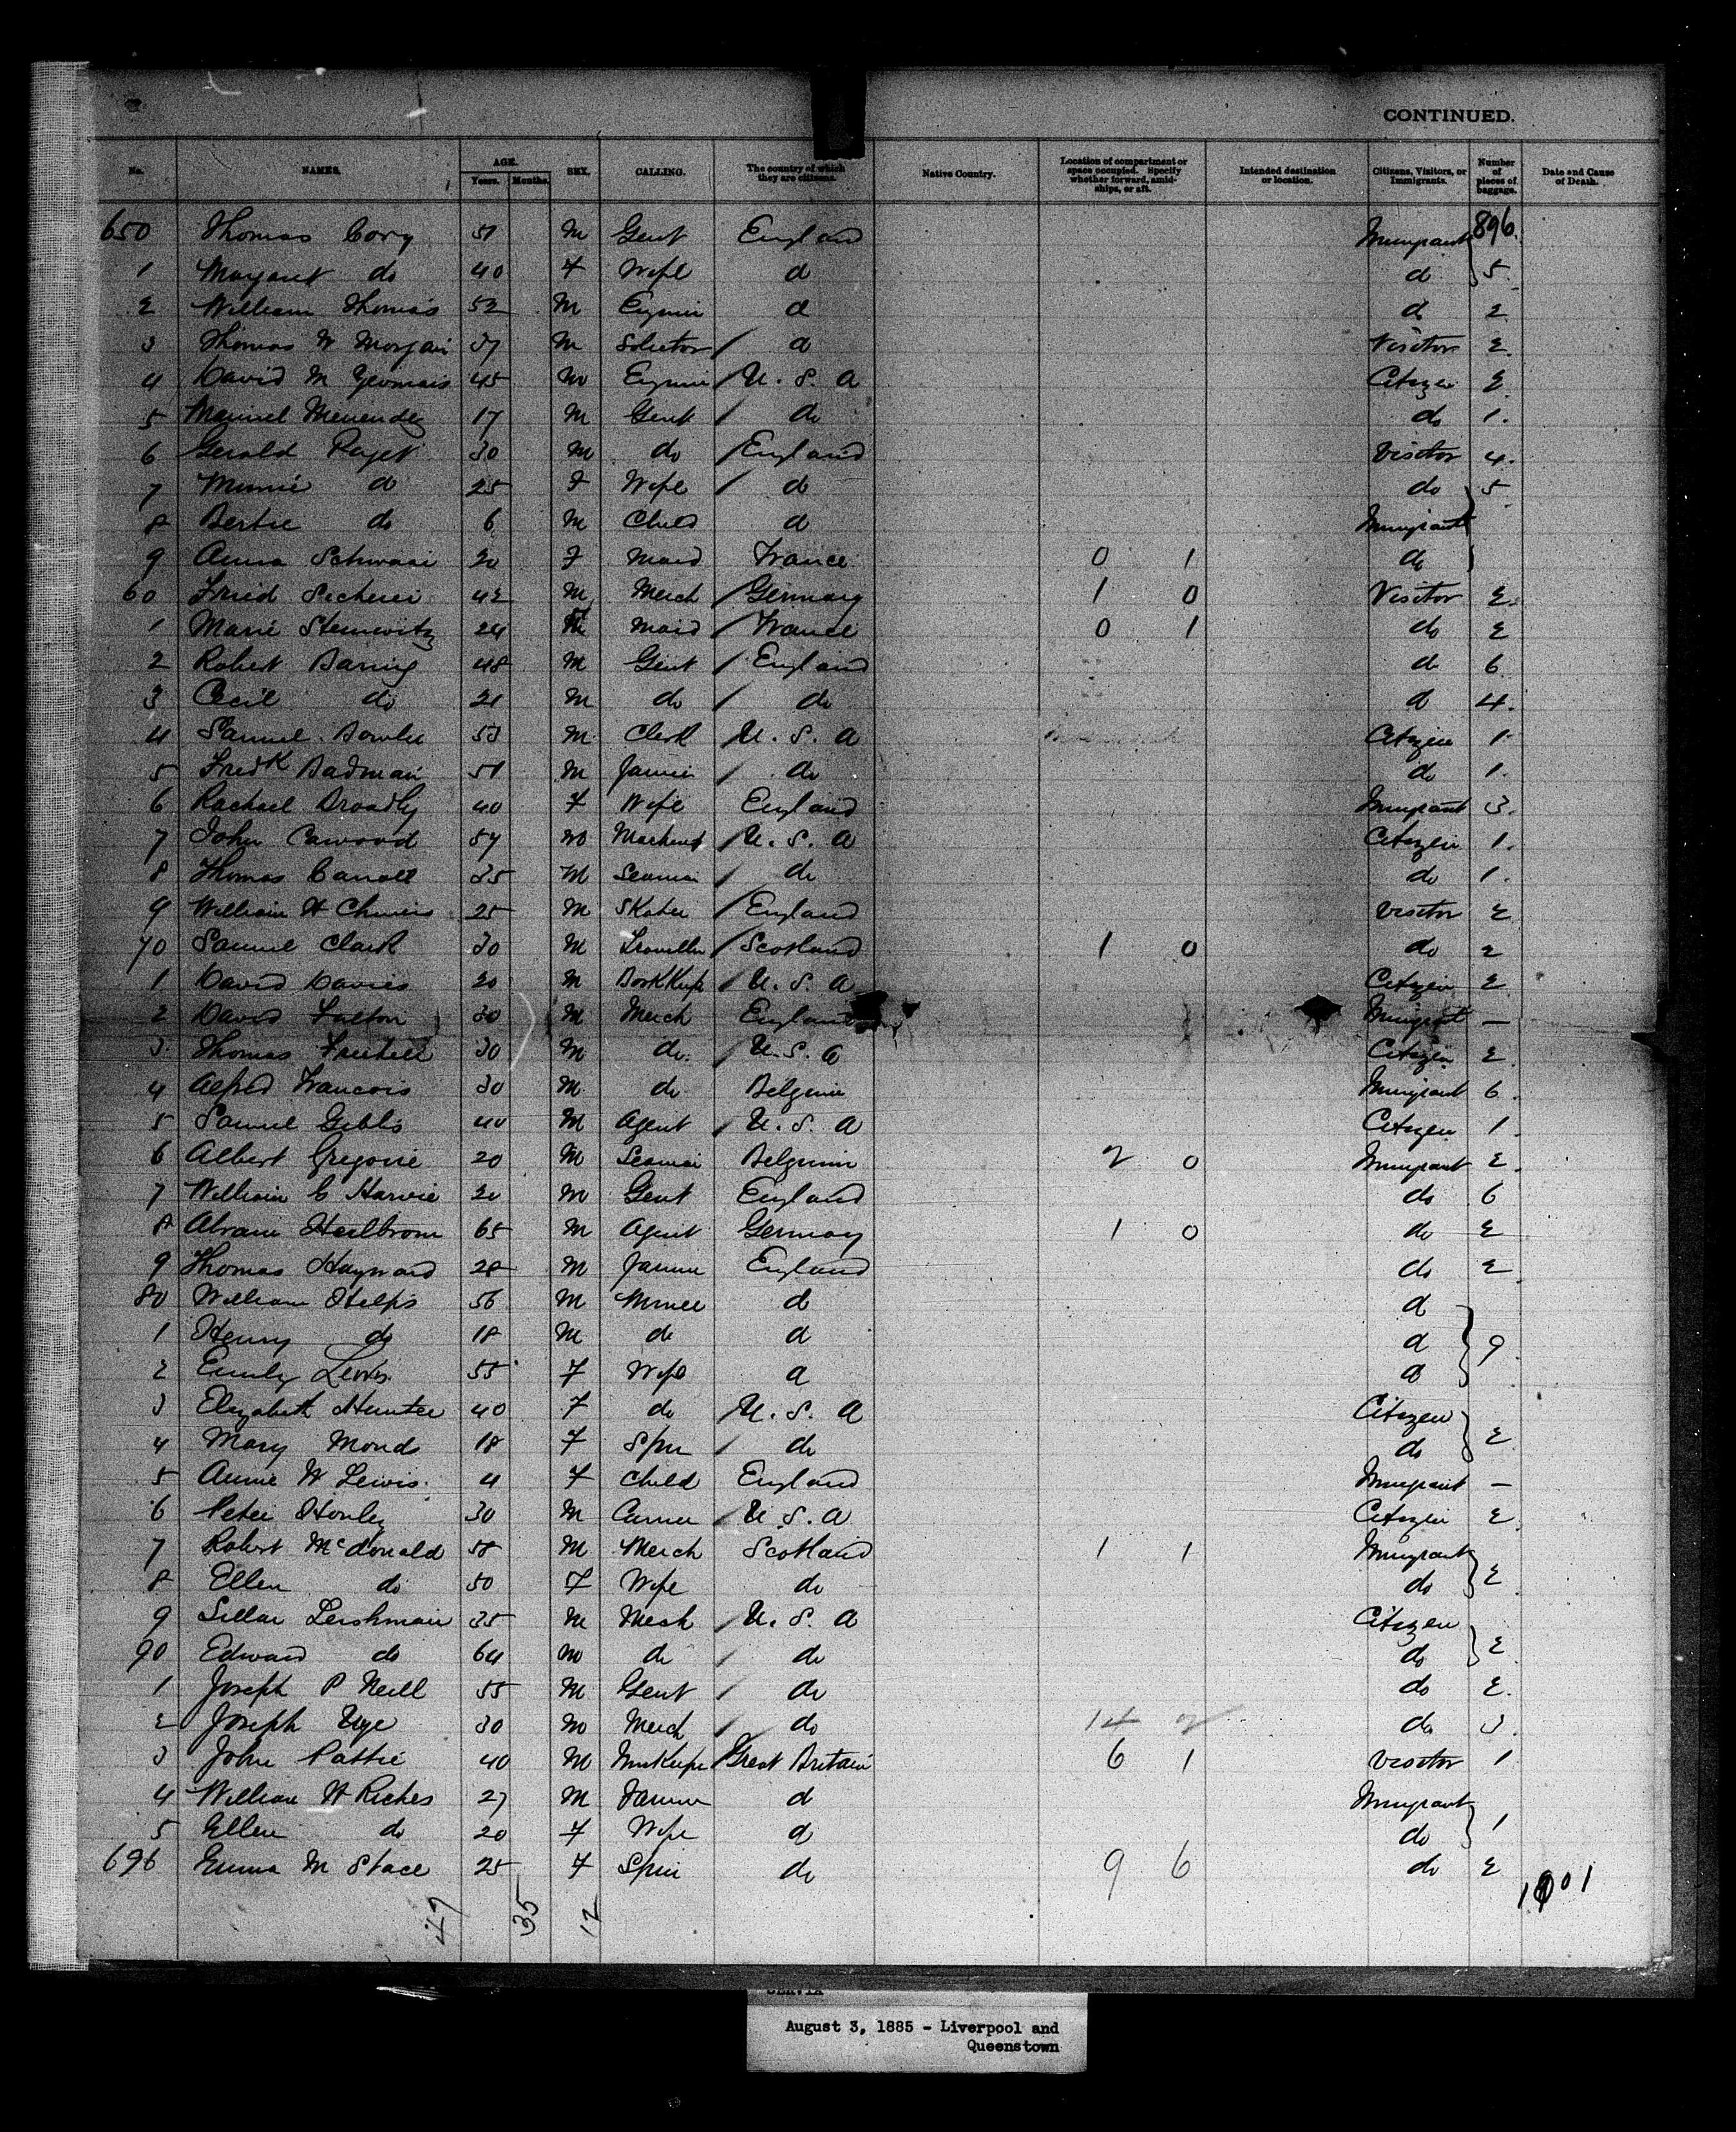 CONTINUED.
No. NAMES. AGE. Years. Months. SEX. CALLING. The country of which they are citizens. Native Country. Location of compartment or space occupied. Specify whether forward, amidships, or aft. Intended destination or location. Citizens, Visitors, or Immigrants. Number of pieces of baggage. Date and Cause of Death.
896.
650 Thomas Cory 51 M Gent England Immigrant
1 Margaret do 40 F Wife d d 5
2 William Thomas 52 M d d 2
3 Thomas W Morgan 37 M Solicitor / d Visitor 2.
4 David M Yeomans 45 M / U. S. A Citizen 2
5 Manuel Menendez 17 M Gent / do do 1.
6 Gerald Paget 30 M do / England Visitor 4.
7 Minnie do 25 F Wife / do do 5
8 Bertie do 6 M Child d Immigrant
9 Anna 20 F Maid France 0 1 do
60 42 M Merch / Germany 1 0 Visitor 2.
1 Marie Steinewitz 24 Maid / France 0 1 do 2
2 Robert Baring 48 M Gent / England d 6
3 Cecil do 21 M do / do d 4.
4 Samuel Bowler 53 M. Clerk / U. S. A Citizen 1
5 Fredk Badman 51 M / do do 1.
6 Rachael Broadly 40 F Wife England Immigrant 3.
7 John Cawood 57 M / U. S. A Citizen 1.
8 Thomas Carroll 35 M Seaman / do do 1.
9 William H 25 M Skater / England Visitor 2
70 Samuel Clark 30 M Traveller / Scotland 1 0 do 2
1 David Davies 20 M BookKeep / U. S. A Citizen 2
2 David Fulton 30 M Merch England Immigrant —
3. Thomas 30 M do. / U. S. A Citizen 2
4 Alfred Francois 30 M do Belgium Immigrant 6.
5 Samuel Gibbs 40 M Agent / U. S. A Citizen 1.
6 Albert Gregorie 20 M Seaman Belgium 2 0 Immigrant 2.
7 William C Harvie 20 M Gent England do 6
8 Abram Heilbronn 65 M Agent Germany 1 0 do 2
9 Thomas Hayward 28 M England do 2
80 William Phelps 56 M Miner d d
1 Henry do 18 M do d d 9.
2 Emily Lewis. 55 F Wife d d
3 Elizabeth Hunter 40 F do / U. S. A Citizen
4 Mary Monds 18 F Spin / do do 2
5 Annie W Lewis. 4 F Child England Immigrant —
6 Peter Honley 30 M / U. S. A Citizen 2.
7 Robert McDonald 58 M Merch Scotland 1 1 Immigrant
8 Ellen do 50 F Wife do do 2
9 Leishman 35 M Mech / U. S. A Citizen
90 Edward do 64 M do / do do 2
1 Joseph P Neill 55 M Gent / do do 2.
2 Joseph 30 M Merch / do 14 2 do 3.
3 John Pattie 40 M / Great Britain 6 1 Visitor 1
4 William H Riches 27 M Farmer d Immigrant
5 Ellen do 20 F Wife d do 1
696 Emma M Stace 25 F Spin do 9 6 do 2
47 35 12
SERVIA
August 3, 1885 - Liverpool and
Queenstown